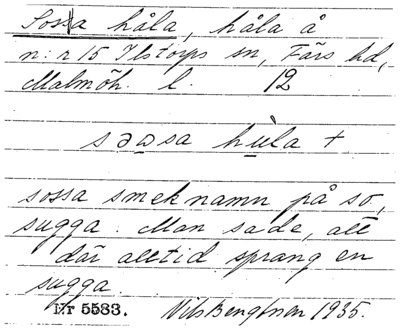 Sossa håla, håla å
n:r 15 Ilstorps sn, Färs hd,
Malmöh. l. 12
səa̲sa hù̲la +
sossa smeknamn på so,
sugga. Man sade, att
där alltid sprang en
sugga.
Nr 5583. Nils Bengtsson 1935.